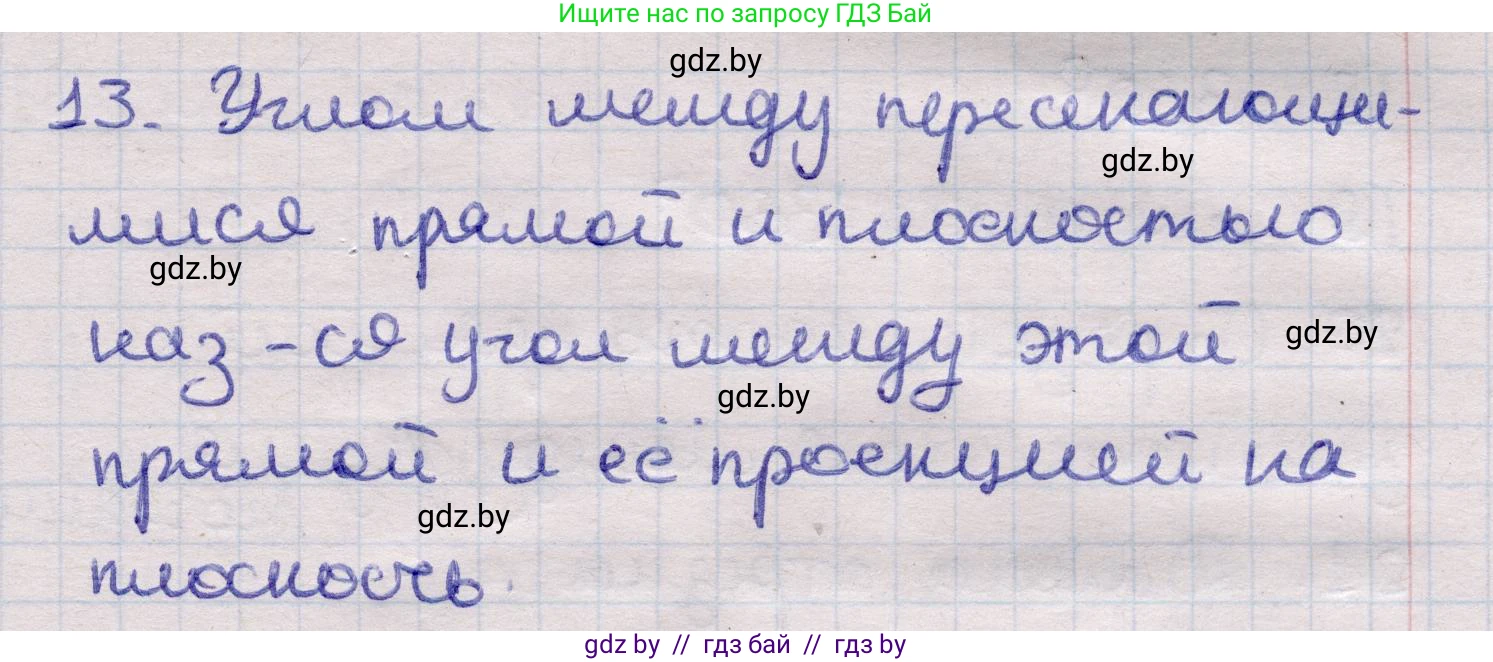 Ищите нас по запросу ГДЗ Бай
gdz.by
13. Углом между пересекающи-
gdz.by
мися прямой и плоскостью
gdz.by
наз-ся угол между этой
gdz.by
gdz.by
прямой и её проекцией на
gdz.by
плоскость.
gdz.by // гдз бай // гдз бу